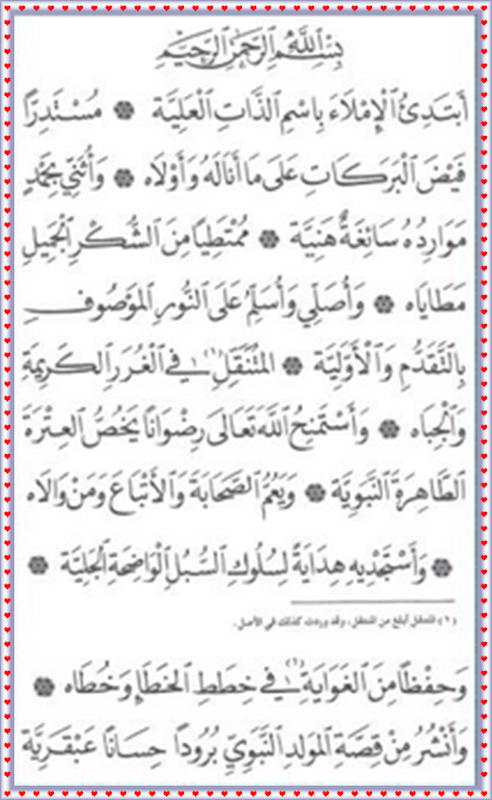 بِسْمِ ٱللَّهِ ٱلرَّحْمَٰنِ ٱلرَّحِيْمِ
أَبْتَدِئُ ٱلْإِمْلَاءَ بِاسْمِ ٱلذَّاتِ ٱلْعَلِيَّة ۞ مُسْتَدِرًّا
فَيْضَ ٱلْبَرَكَاتِ عَلَى مَا أَنَالَهُ وَأَوْلَاه ۞ وَأُثَنِّي بِحَمْدٍ
مَوَارِدُهُ سَائِغَةٌ هَنِيَّة ۞ مُمْتَطِيًا مِنَ ٱلشُّكْرِ ٱلْجَمِيلِ
مَطَايَاه ۞ وَأُصَلِّي وَأُسَلِّمُ عَلَى ٱلنُّورِ ٱلْمَوْصُوفِ
بِٱلتَّقَدُّمِ وَٱلْأَوَّلِيَّة ۞ ٱلْمُتَنَقِّلِ (١) فِي ٱلْغُرَرِ ٱلْكَرِيمَةِ
وَٱلْجِبَاه ۞ وَأَسْتَمْنِحُ ٱللَّهَ تَعَالَى رِضْوَانًا يَخُصُّ ٱلْعِتْرَةَ
ٱلطَّاهِرَةَ ٱلنَّبَوِيَّة ۞ وَيَعُمُّ ٱلصَّحَابَةَ وَٱلْأَتْبَاعَ وَمَنْ وَالَاه
۞ وَأَسْتَجْدِيهِ هِدَايَةً لِسُلُوكِ ٱلسُّبُلِ ٱلْوَاضِحَةِ ٱلْجَلِيَّة ۞
(١) المتنقل أبلغ من المنتقل، وقد وردت كذلك في الأصل.
وَحِفْظًا مِنَ ٱلْغَوَايَةِ (١) فِي خِطَطِ ٱلْخَطَإِ وَخُطَاه ۞
وَأَنْشُرُ مِنْ قِصَّةِ ٱلْمَوْلِدِ ٱلنَّبَوِيِّ بُرُودًا حِسَانًا عَبْقَرِيَّة